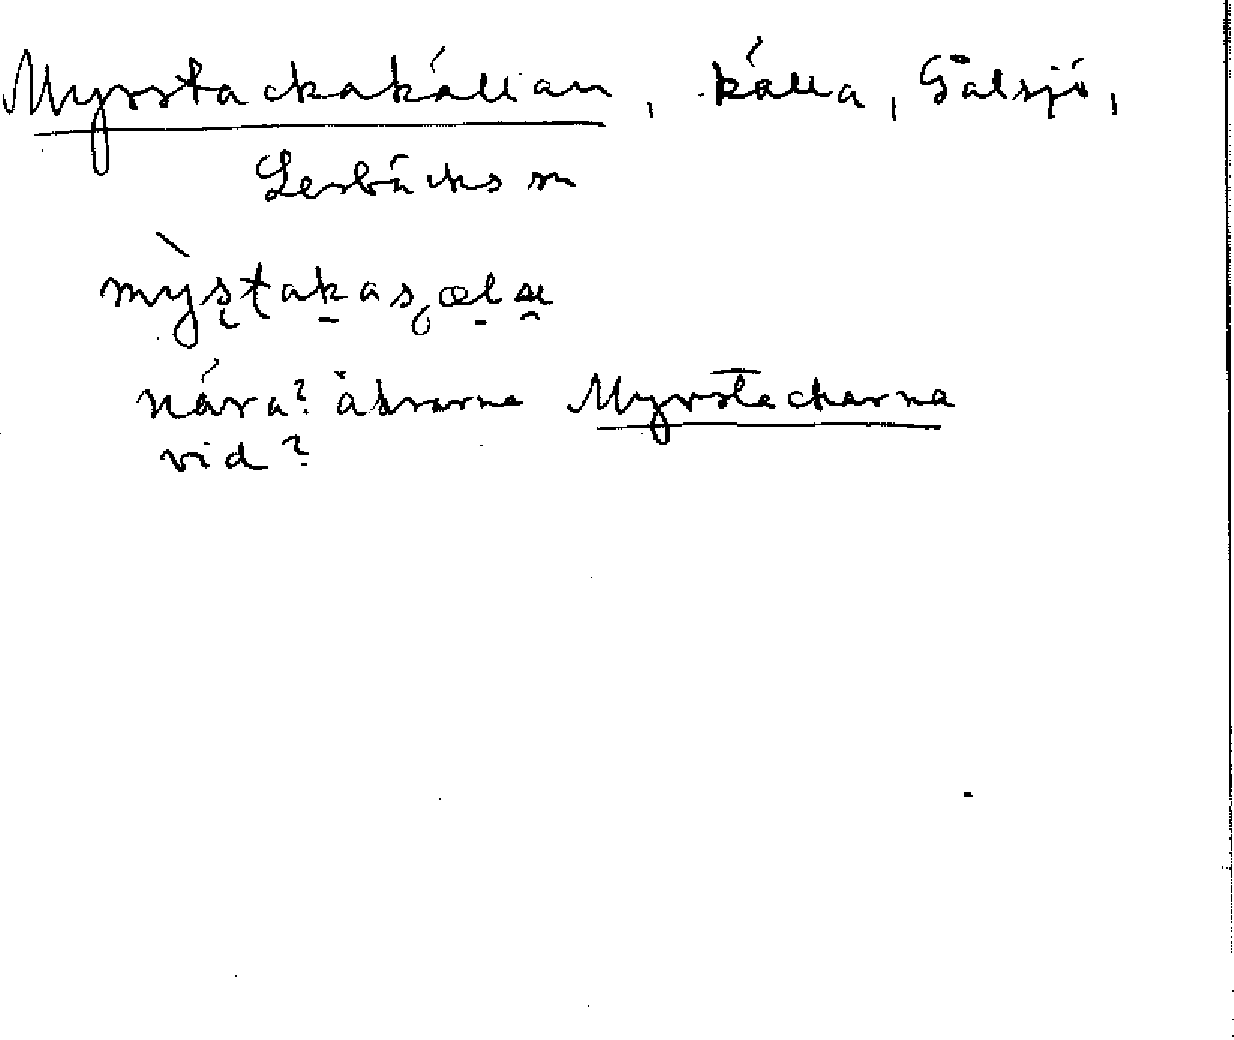 Myrstackakällan, källa, Gålsjö,
Lerbäcks sn
nära? åkrarna Myrstackarna
vid?